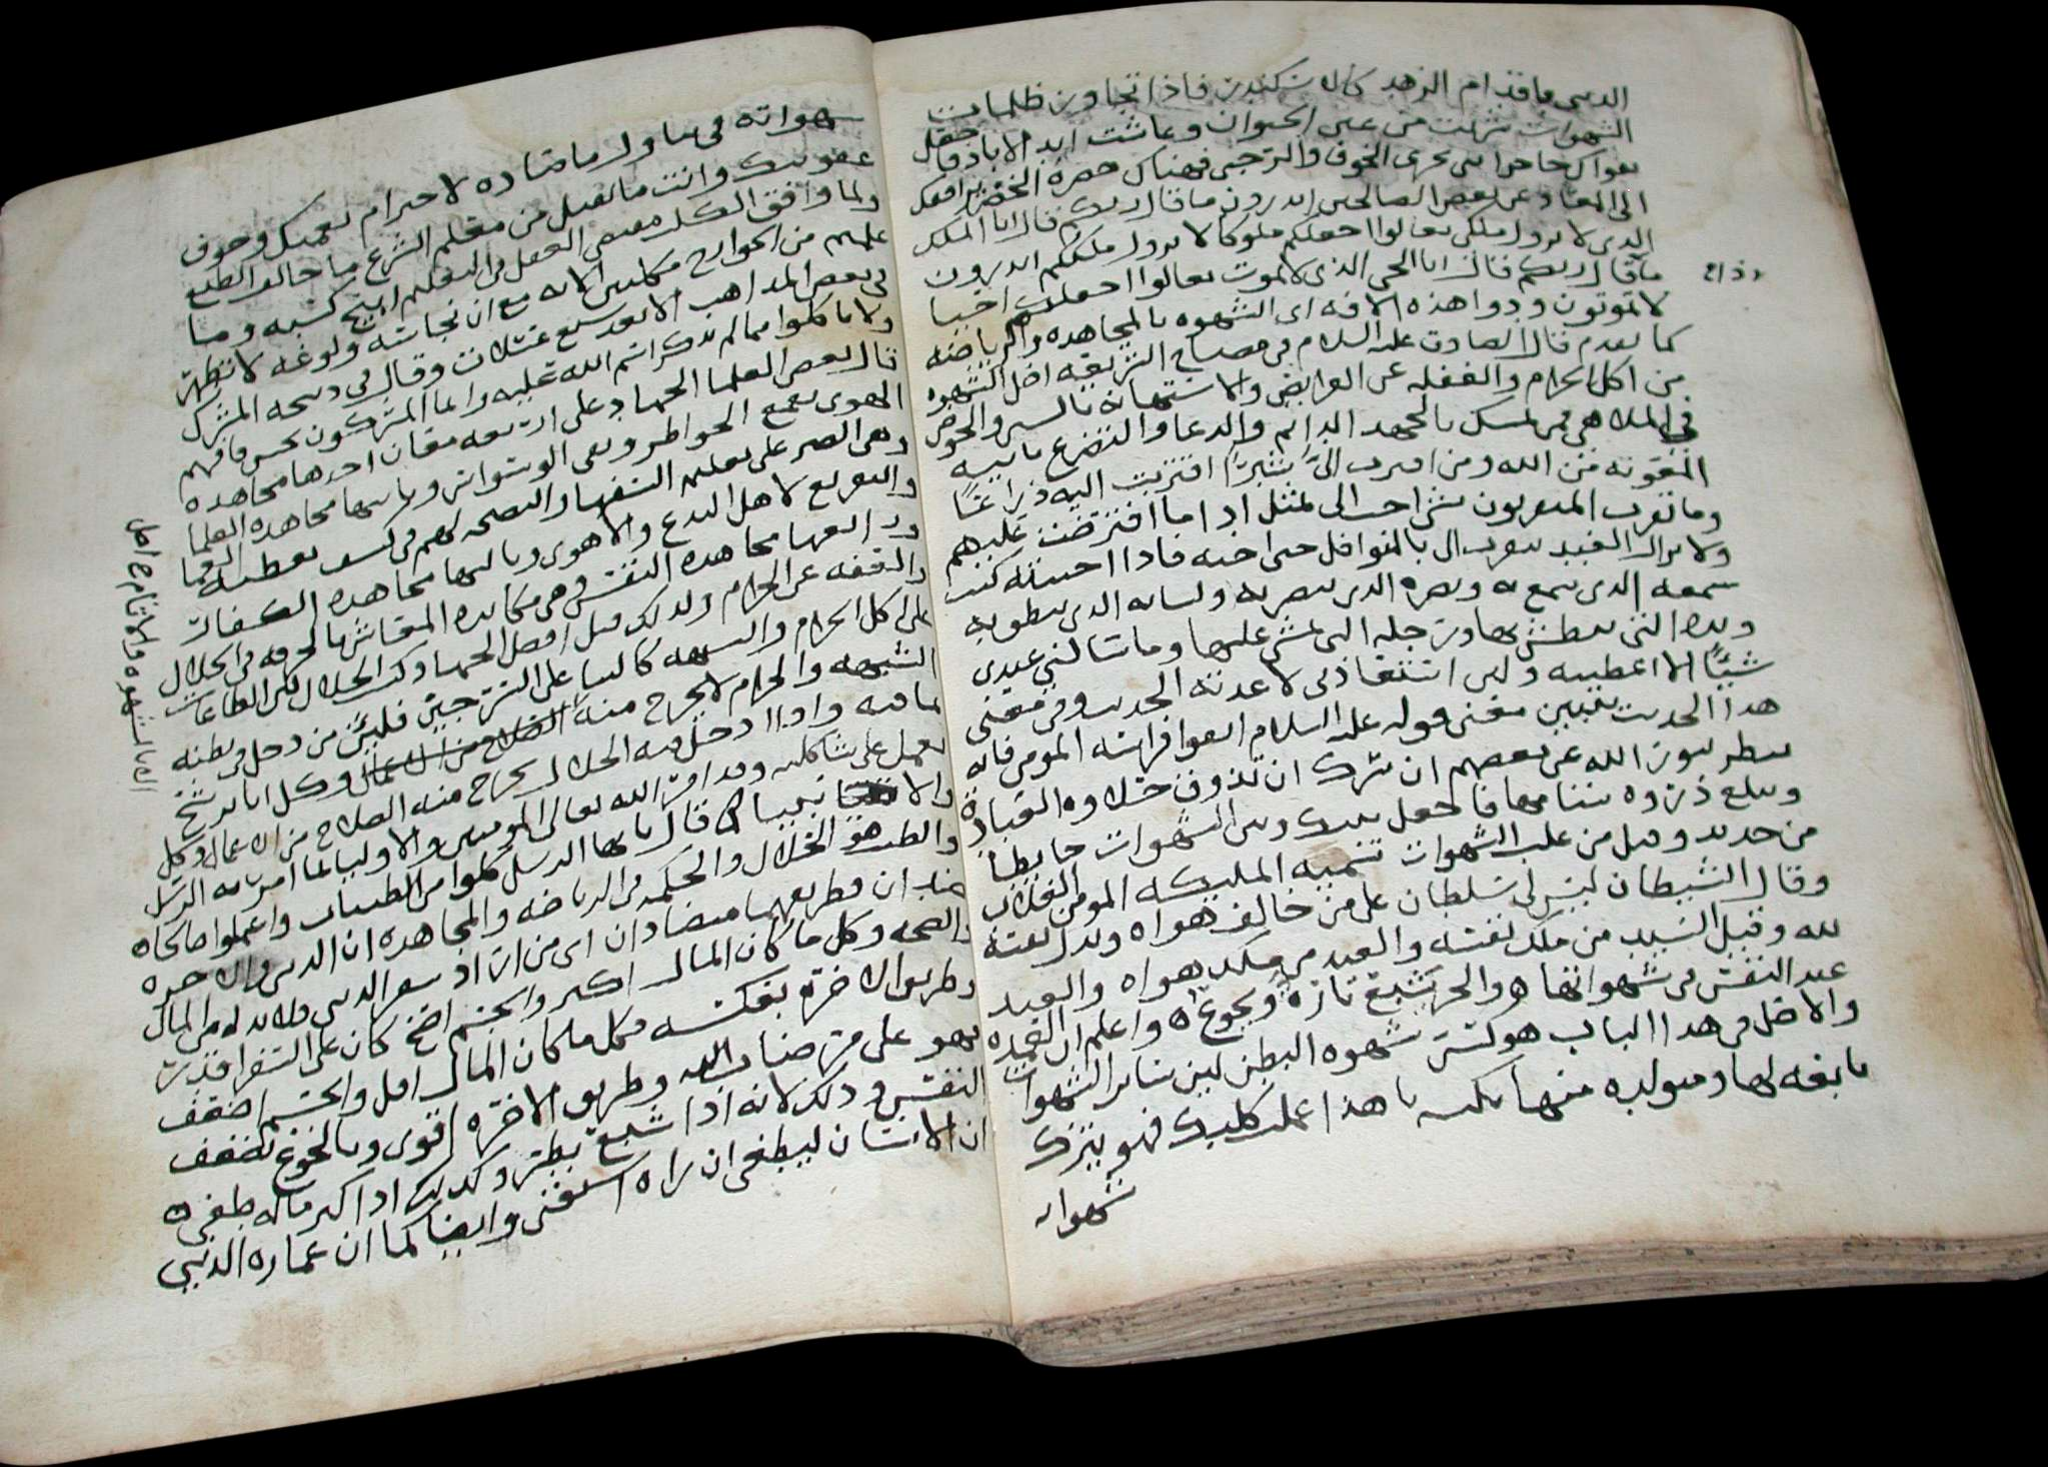 الدنيى باقدام الزهد كالاسكندر فاذا تجاوز ظلمات
الشهوات شربت من عين الحيوان وعاشت ابد الاباد وقا
الى المعاد وعن بعض الصالحين اتدرون ما قال ربكم قال انا الملك
الذي لا يزول ملكي تعالوا اجعلكم ملوكا لا يزول ملككم اتدرون
ما قال ربكم قال انا الحي الذي لا يموت تعالوا اجعلكم احيا
لا تموتون ودوا هذه الافه اى الشهوه بالمجاهده والرياضه
كما تقدم قال الصادق عليه السلام في مصباح الشريعه اصل الشهوه
من اكل الحرام والغفله عن الفرايض والاستهانه بالسنن والخوض
في الملاهي فتمسك بالجهد الدايم والدعا والتضرع
المعونه من الله ومن اقترب الىَّ شبرًا اقتربت اليه ذراعًا
وما تقرب المتقربون بشي احب الى بمثل ادا ما افترضت عليهم
ولا يزال العبد يتقرب الى بالنوافل حتى احبه فاذا احببته كنت
سمعه الذي يسمع به وبصره الذي يبصر به ولسانه الذي ينطق به
ويده التي يبطش بها ورجله التي يمشي عليها وما سالني عبدي
شيًّا الا اعطيته ولين استعاذني لاعذته الحديث وفي معنى
هذا الحديث يتبين معنى قوله عليه السلام اتقوا فراسة المومن فانه
ينظر بنور الله عن بعضهم ان سرك ان تذوق حلاوه العباده
وتبلغ ذروه سنامها فاجعل بينك وبين الشهوات حايطا
من حديد وقيل من غلب الشهوات تسميه المليكه المومن الغلاب
وقال الشيطان ليس لي سلطان على من خالف هواه وبذل نفسه
لله وقيل السيد من ملك نفسه والعبد من ملكه هواه والعبد
عبد النفس في شهواتها هو والحر يشبع تارة ويجوع واعلم ان العمده
والاصل في هذا الباب هو كسر شهوه البطن لين ساير الشهوات
تابعه لها ومتولده منها نكته يا هذا علمت كلبك فهو يترك
شهواته
شهواته في تناول ما صاده لاحترام نعمتك وخوف
عقوبتك وانت ما تقبل من معلم الشرع ما خالف الطبع
ولما وافق الكلب مقتضى العقل في التعلم ابيح كسبه وما
علمتم من الجوارح مكلبين الايه مع ان نجاسته ولوغه لا تطهر
في بعض المذاهب الا بعد سبع غسلات وقال في ذبيحه المشرك
ولا تاكلوا مما لم يذكر اسم الله عليه وانما المشركون نجس فافهم
قال بعض العلما الجهاد على اربعه معان احدها مجاهده
الهوى بقمع الخواطر ونفي الوسواس وثانيها مجاهده العلما
وهي الصبر على تعليم السفها والنصحه لهم في كشف تعطيله
والتوريع لاهل البدع والاهوى وثالثها مجاهده الكفار
ورابعها مجاهده النفس وهي مكابده المعاش بالحرفه في الحلال
والعفه عن الحرام ولذلك قيل افضل الجهاد كسب الحلال
على اكل الحرام والشبهه
الشبهه والحرام لا يخرج منه الصلاح من الاعمال وكل انا يرشح
بما فيه واذا دخل فيه الحلال يخرج منه الصلاح من الاعمال وكل
يعمل على شاكلته وقد امر الله تعالى المومنين والاوليا بما امر به الرسل
والانبيا قال يا ايها الرسل كلوا من الطيبات واعملوا صالحا
والطيب هو الحلال والحكمه في الرياضه والمجاهده ان الدنيى والاخره
ضدان وطريقهما متضادان اى من اراد سفر الدنيى فلا بد له من المال
والصحه وكل ما كان المال اكثر والجسم اصح كان على السفر اقدر
وطريق الاخرة بعكسه فكل ما كان المال اقل والجسم اضعف
فهو على مرضات الله وطريق الاخره اقوى وبالجوع تضعف
النفس وذلك لانه اذا شبع بطر وكذلك اذا كثر ماله طغى
ان الانسان ليطغى ان راه استغنى وايضا كما ان عماره الدنيى